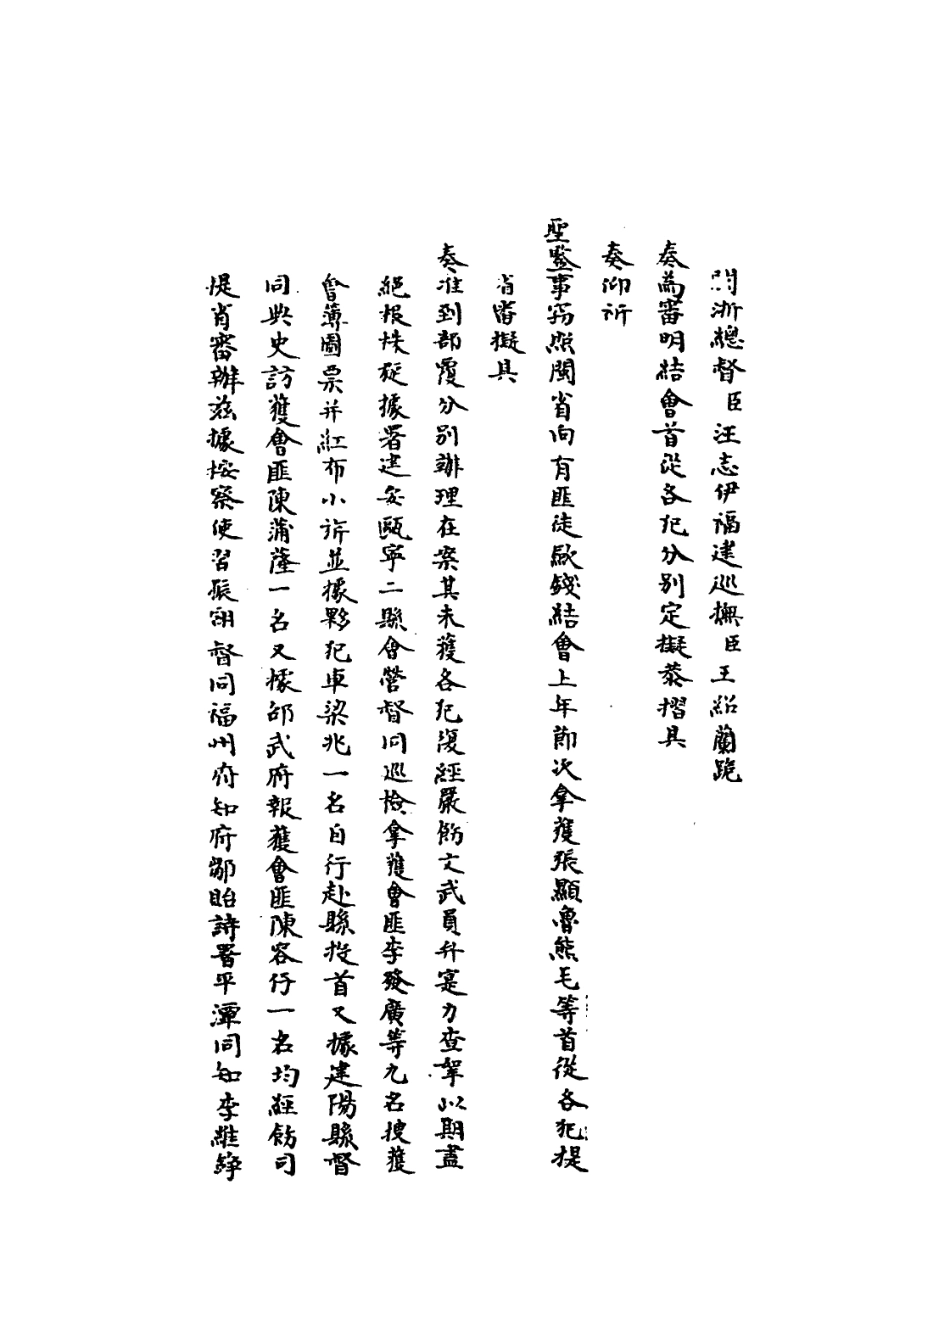 閩浙總督臣汪志伊福建巡撫臣王紹蘭跪
奏為審明結會首從各犯分別定擬恭摺具
奏仰祈
聖鑒事竊照閩省向有匪徒歛錢結會上年節次拿獲張顯魯熊毛等首從各犯提
省審擬具
奏准到部覆分別辦理在案其未獲各犯復經嚴飭文武員弁寔力查拏以期盡
絕根株玆據署建安甌寧二縣會營督同巡檢拿獲會匪李發廣等九名搜獲
會簿圖票并紅布小旂並據夥犯車梁兆一名自行赴縣投首又據建陽縣督
同典史訪獲會匪陳蒲蓙一名又據邵武府報獲會匪陳容仔一名均經飭司
提省審辦玆據按察使習振翎督同福州府知府鄒貽詩署平潭同知李維錚